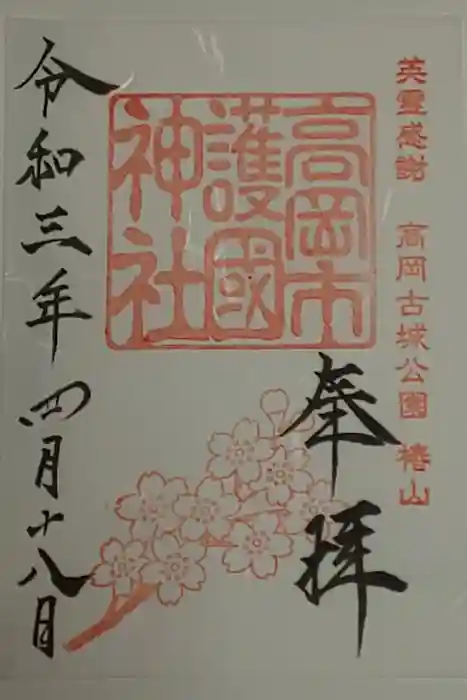 英霊感謝 高岡古城公園 椿山
奉拝
高岡市
護國
神社
令和三年四月十八日